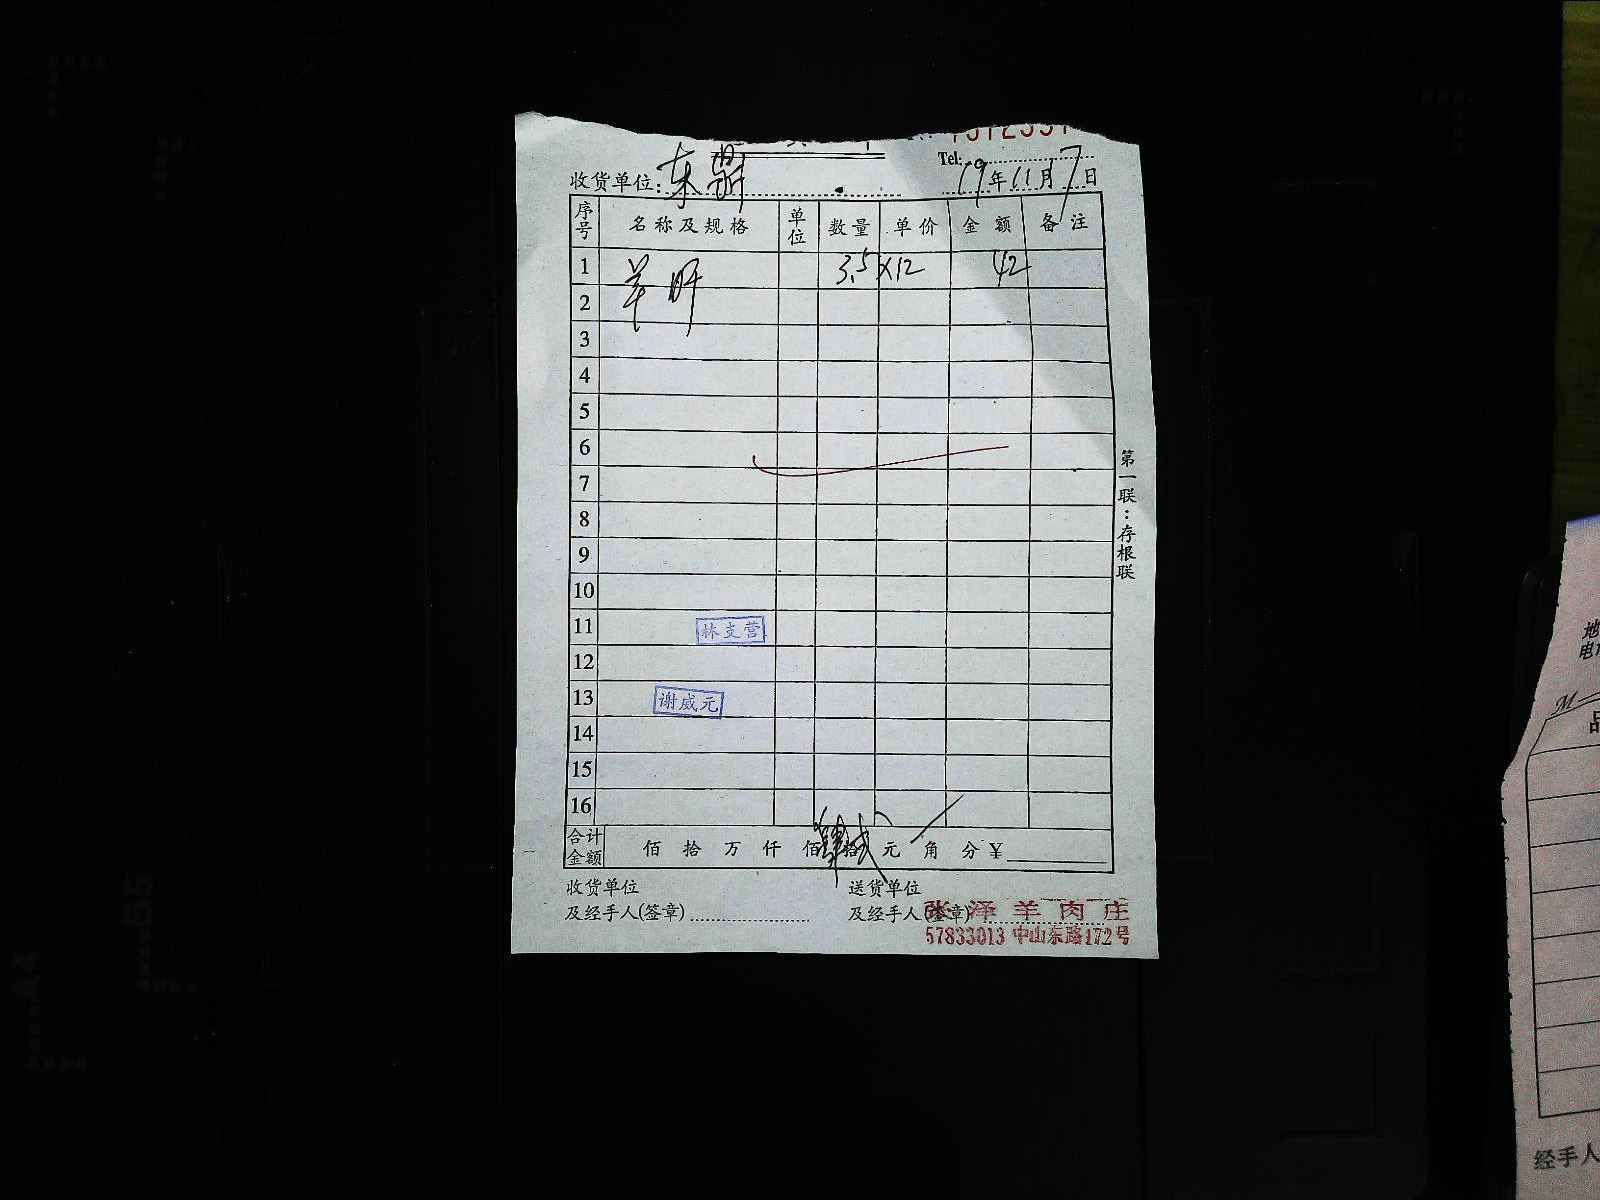 Tel:
收货单位: 东鼎 19年11月7日
序号 名称及规格 单位 数量 单价 金额 备注
1 羊肝 3.5×12 42
2
3
4
5
6
7
8
9
10
11 林支营
12
13 谢威元
14
15
16
合计金额 佰拾万仟佰肆拾贰元角分¥
收货单位 送货单位
及经手人(签章) 及经手人(签章)
张泽羊肉庄
57833013 中山东路172号
第一联:存根联
地
电
M
品
经手人